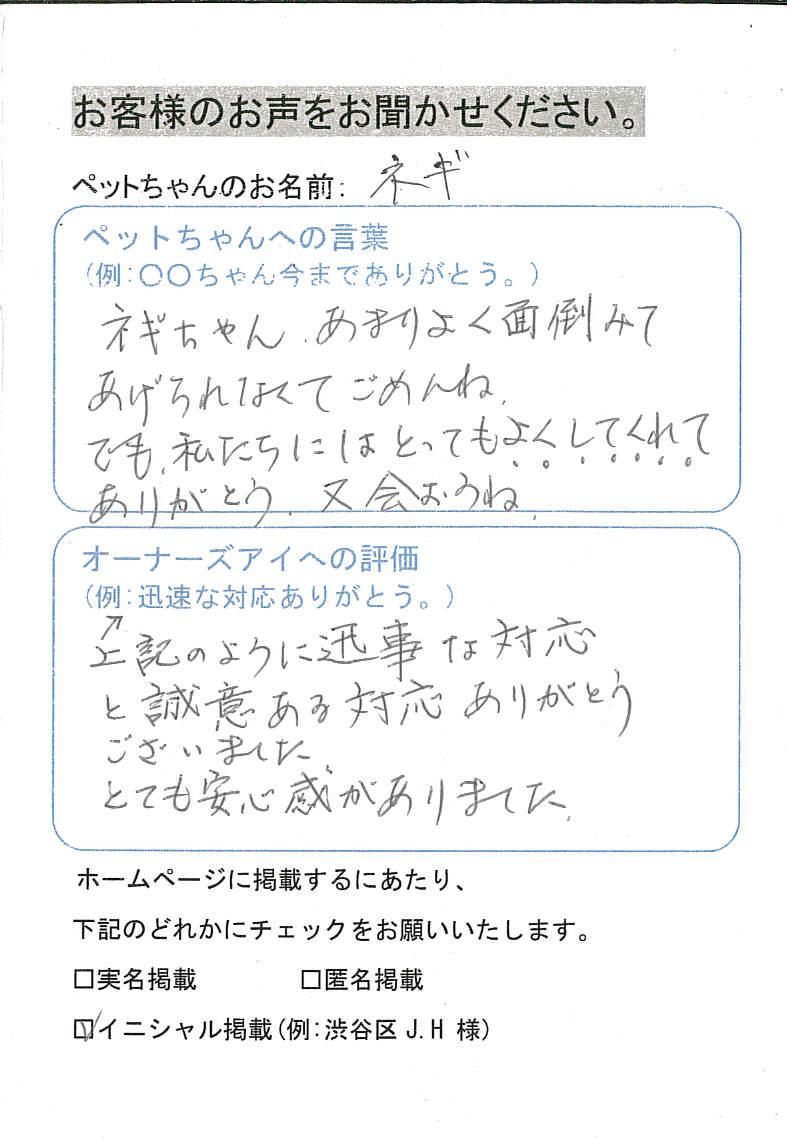 お客様のお声をお聞かせください。
ペットちゃんのお名前: ネギ
ペットちゃんへの言葉
(例:〇〇ちゃん今までありがとう。)
ネギちゃん、あまりよく面倒みて
あげられなくてごめんね、
でも、私たちにはとってもよくしてくれて
ありがとう、又会おうね、
オーナーズアイへの評価
(例:迅速な対応ありがとう。)
↗
上記のように迅事な対応
と誠意ある対応ありがとう
ございました、
とても安心感がありました、
ホームページに掲載するにあたり、
下記のどれかにチェックをお願いいたします。
□実名掲載 □匿名掲載
☑イニシャル掲載(例:渋谷区 J.H 様)